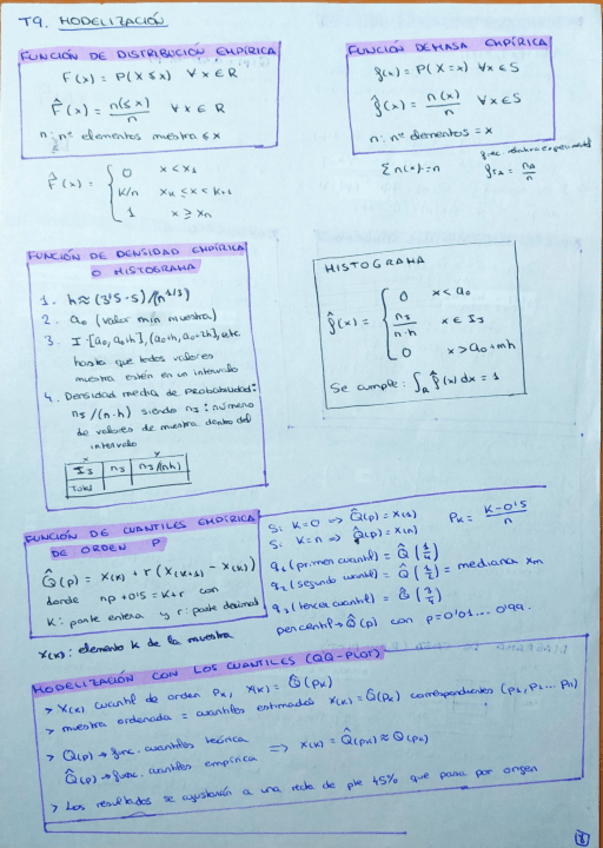 T9. MODELIZACIÓN
FUNCIÓN DE DISTRIBUCIÓN EMPÍRICA
F(x) = P(X ≤ x) ∀x ∈ R
F̂(x) = n(≤x)/n ∀x ∈ R
n: nº elementos muestra ≤ x
F̂(x) = { 0 x < x₁
K/n xₖ ≤ x < k+1
1 x ≥ xₙ
FUNCIÓN DE MASA EMPÍRICA
f(x) = P(X = x) ∀x ∈ S
f̂(x) = n(x)/n ∀x ∈ S
n: nº elementos = x
Σ n(·) = n
frec. relativa experimental
f_{rA} = n_A/n
FUNCIÓN DE DENSIDAD EMPÍRICA
O HISTOGRAMA
1. h ≈ (3'5 · s)/(n^{1/3})
2. a₀ (valor min muestra)
3. I · [a₀, a₀+h], (a₀+h, a₀+2h], etc
hasta que todos valores
muestra estén en un intervalo
4. Densidad media de PROBABILIDAD:
nⱼ/(n·h) siendo nⱼ: número
de valores de muestra dentro del
intervalo
x y
Iⱼ nⱼ nⱼ/(nh)
Total
HISTOGRAMA
f̂(x) = { 0 x < a₀
nⱼ/(n·h) x ∈ Iⱼ
0 x > a₀+mh
Se cumple: ∫_R f̂(x) dx = 1
FUNCIÓN DE CUANTILES EMPÍRICA
DE ORDEN P
Q̂(p) = x(k) + r (x(k+1) - x(k))
donde np + 0'5 = k+r con
K: parte entera y r: parte decimal
x(k): elemento k de la muestra
Si K=0 ⇒ Q̂(p) = x(1)
Si K=n ⇒ Q̂(p) = x(n)
Pₖ = (K-0'5)/n
q₁ (primer cuantil) = Q̂(1/4)
q₂ (segundo cuantil) = Q̂(1/2) = mediana xm
q₃ (tercer cuantil) = Q̂(3/4)
percentil → Q̂(p) con p = 0'01 ... 0'99.
MODELIZACIÓN CON LOS CUANTILES (QQ-PLOT)
> X(k) cuantil de orden Pₖ, x(k) = Q̂(Pₖ)
> muestra ordenada = cuantiles estimados x(k) = Q̂(Pₖ) correspondientes (p₁, p₂ ... pn)
> Q(p) → func. cuantiles teórica
Q̂(p) → func. cuantiles empírica ⇒ x(k) = Q̂(pₖ) ≈ Q(pₖ)
> Los resultados se ajustarán a una recta de pte 45% que pasa por origen